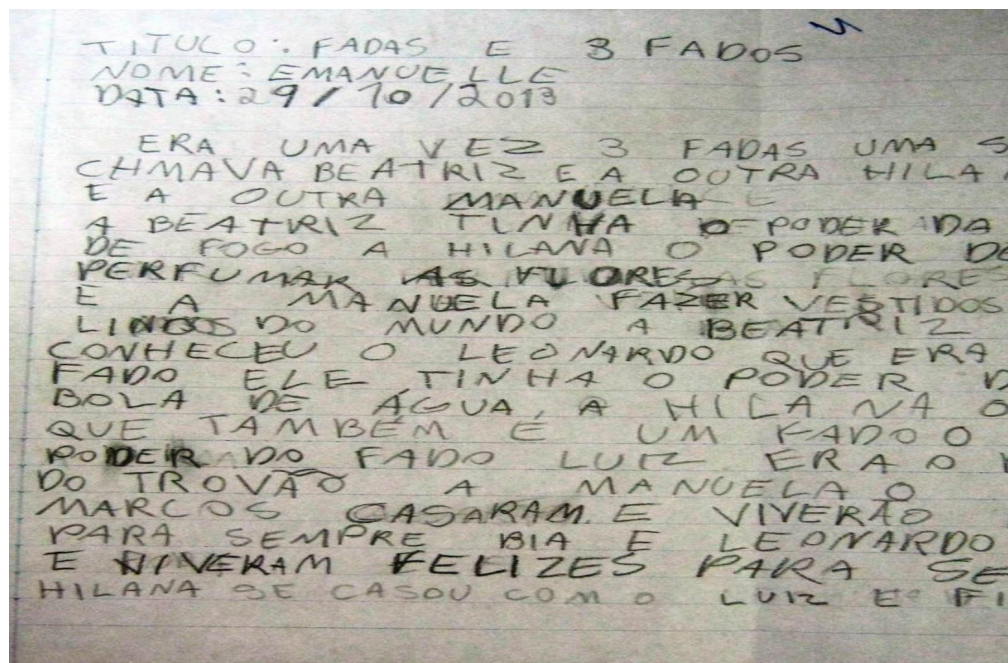 TITULO: FADAS E 3 FADOS
NOME: EMANUELLE
DATA: 29/10/2013
ERA UMA VEZ 3 FADAS UMA S
CHMAVA BEATRIZ E A OUTRA HILA
E A OUTRA MANUELA
A BEATRIZ TINHA O PODER DA
DE FOGO A HILANA O PODER DE
PERFUMAR AS FLORES AS FLORE
E A MANUELA FAZER VESTIDOS
LINDOS DO MUNDO A BEATRIZ
CONHECEU O LEONARDO QUE ERA
FADO ELE TINHA O PODER D
BOLA DE ÁGUA, A HILANA O
QUE TAMBÉM E UM FADO O
PODER DO FADO LUIZ ERA O
DO TROVÃO A MANUELA O
MARCOS CASARAM E VIVERÃO
PARA SEMPRE BIA E LEONARDO
E VIVERAM FELIZES PARA SE
HILANA SE CASOU COM O LUIZ E FI